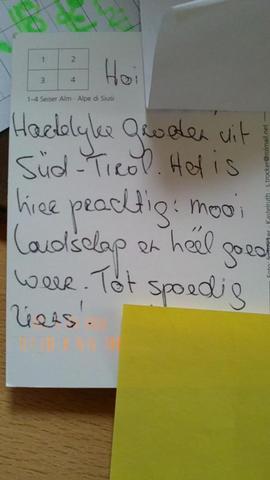 1 2
3 4
1–4 Seiser Alm - Alpe di Siusi
Hoi
Hartelijke Groeten uit
Süd-Tirol. Het is
hier prachtig: mooi
landschap en héél goed
weer. Tot spoedig
ziens!